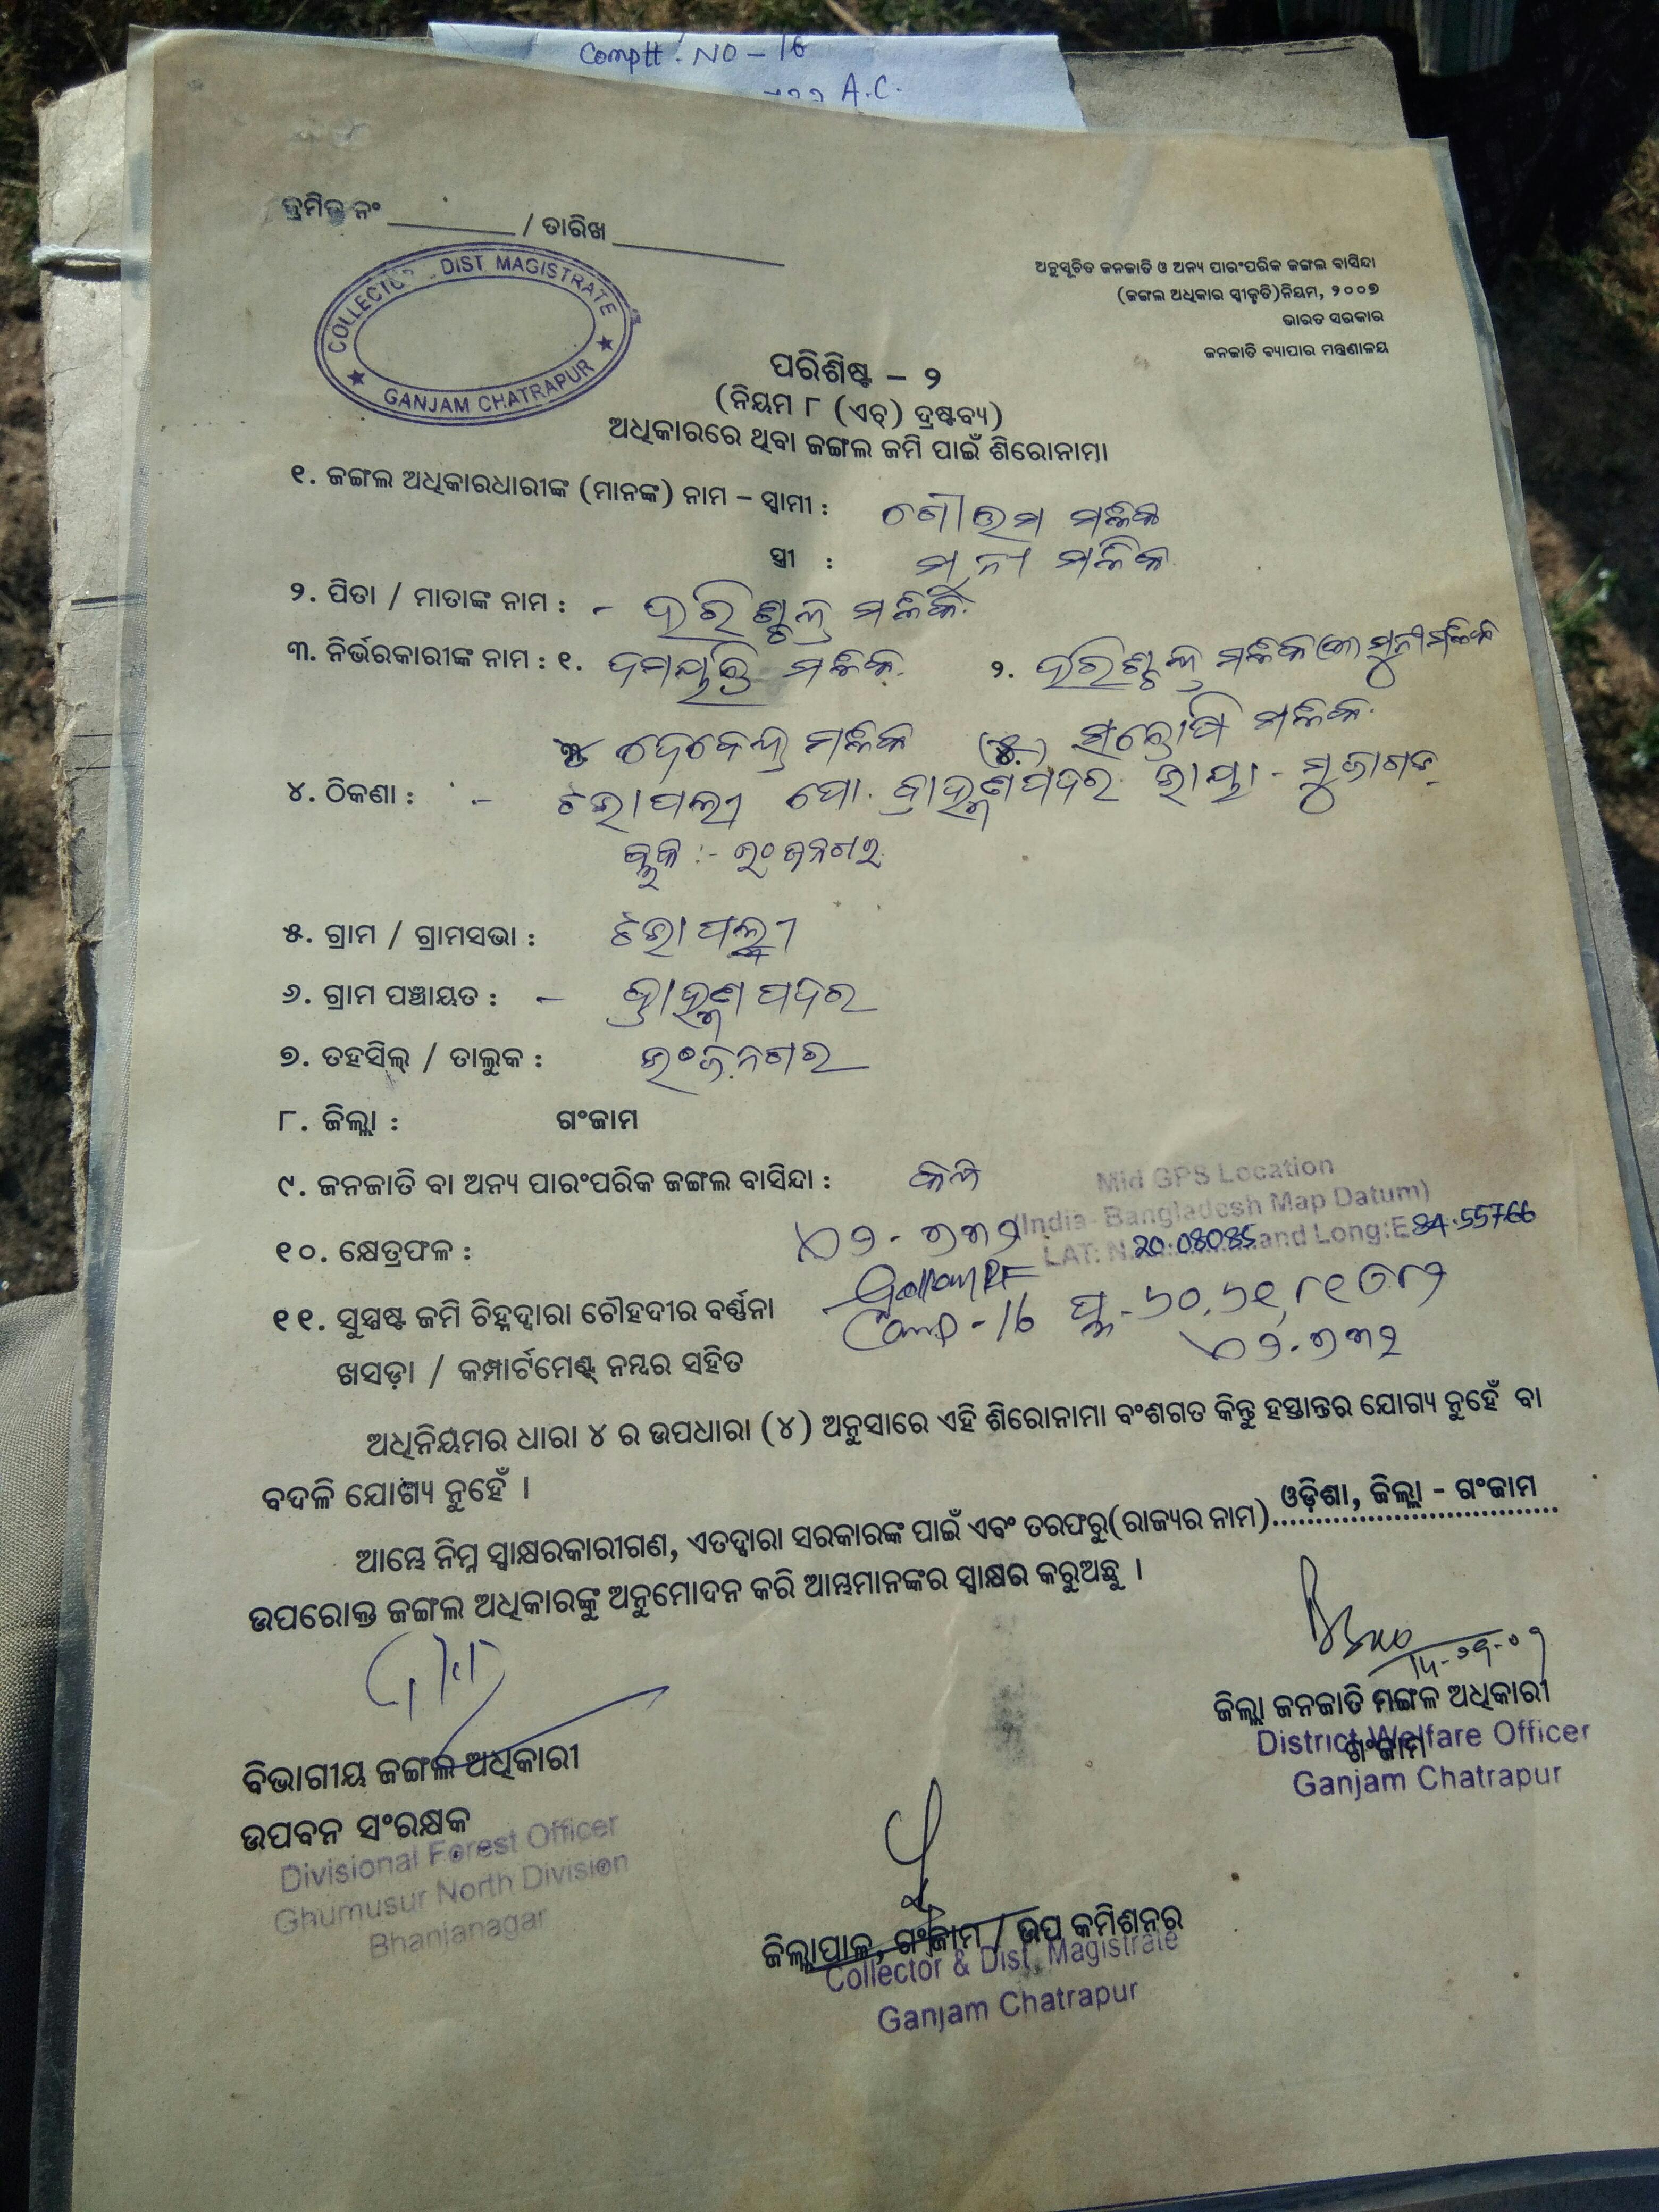 Comptt. NO - 16
A.C.
କ୍ରମିକ ନଂ ________ / ତାରିଖ ________
COLLECTOR DIST MAGISTRATE
★ GANJAM CHATRAPUR ★
ଅନୁସୂଚିତ ଜନଜାତି ଓ ଅନ୍ୟ ପାରଂପରିକ ଜଙ୍ଗଲ ବାସିନ୍ଦା
(ଜଙ୍ଗଲ ଅଧିକାର ସ୍ୱୀକୃତି)ନିୟମ, ୨୦୦୭
ଭାରତ ସରକାର
ଜନଜାତି ବ୍ୟାପାର ମନ୍ତ୍ରଣାଳୟ
ପରିଶିଷ୍ଟ – ୨
(ନିୟମ ୮ (ଏଚ୍) ଦ୍ରଷ୍ଟବ୍ୟ)
ଅଧିକାରରେ ଥିବା ଜଙ୍ଗଲ ଜମି ପାଇଁ ଶିରୋନାମା
୧. ଜଙ୍ଗଲ ଅଧିକାରଧାରୀଙ୍କ (ମାନଙ୍କ) ନାମ – ସ୍ୱାମୀ : ଗୌତମ ମଳିକ
ସ୍ତ୍ରୀ : ମୁନୀ ମଳିକ
୨. ପିତା / ମାତାଙ୍କ ନାମ : - ହରିଶ୍ଚନ୍ଦ୍ର ମଳିକ
୩. ନିର୍ଭରକାରୀଙ୍କ ନାମ : ୧. ଦମୟନ୍ତି ମଳିକ ୨. ହରିଶ୍ଚନ୍ଦ୍ର ମଳିକ (୩) ମୁନୀ ମଳିକ
ଦେବେନ୍ଦ୍ର ମଳିକ (୫) ମଳିକ
୪. ଠିକଣା : - ପୋ. ବ୍ରାହ୍ମଣପଦର ଭାୟା - ମୁଜାଗଡ଼
ବ୍ଲକ :- ଭଂଜନଗର
୫. ଗ୍ରାମ / ଗ୍ରାମସଭା :
୬. ଗ୍ରାମ ପଞ୍ଚାୟତ : - ବ୍ରାହ୍ମଣପଦର
୭. ତହସିଲ୍ / ତାଲୁକ : ଭଂଜନଗର
୮. ଜିଲ୍ଲା : ଗଂଜାମ
୯. ଜନଜାତି ବା ଅନ୍ୟ ପାରଂପରିକ ଜଙ୍ଗଲ ବାସିନ୍ଦା :
Mid GPS Location
(India- Bangladesh Map Datum)
LAT: N 20.08085 and Long:E 84.55766
୧୦. କ୍ଷେତ୍ରଫଳ :
୧୧. ସୁସ୍ପଷ୍ଟ ଜମି ଚିହ୍ନଦ୍ୱାରା ଚୌହଦୀର ବର୍ଣ୍ଣନା Comp - 16
ଖସଡ଼ା / କମ୍ପାର୍ଟମେଣ୍ଟ୍ ନମ୍ବର ସହିତ
ଅଧିନିୟମର ଧାରା ୪ ର ଉପଧାରା (୪) ଅନୁସାରେ ଏହି ଶିରୋନାମା ବଂଶଗତ କିନ୍ତୁ ହସ୍ତାନ୍ତର ଯୋଗ୍ୟ ନୁହେଁ ବା
ବଦଳି ଯୋଗ୍ୟ ନୁହେଁ ।
ଆମ୍ଭେ ନିମ୍ନ ସ୍ୱାକ୍ଷରକାରୀଗଣ, ଏତଦ୍ୱାରା ସରକାରଙ୍କ ପାଇଁ ଏବଂ ତରଫରୁ(ରାଜ୍ୟର ନାମ) ଓଡ଼ିଶା, ଜିଲ୍ଲା - ଗଂଜାମ
ଉପରୋକ୍ତ ଜଙ୍ଗଲ ଅଧିକାରଙ୍କୁ ଅନୁମୋଦନ କରି ଆମ୍ଭମାନଙ୍କର ସ୍ୱାକ୍ଷର କରୁଅଛୁ ।
ଜିଲ୍ଲା ଜନଜାତି ମଙ୍ଗଳ ଅଧିକାରୀ
ଗଂଜାମ
District Welfare Officer
Ganjam Chatrapur
ବିଭାଗୀୟ ଜଙ୍ଗଲ ଅଧିକାରୀ
ଉପବନ ସଂରକ୍ଷକ
Divisional Forest Officer
Ghumusur North Division
Bhanjanagar
ଜିଲ୍ଲାପାଳ, ଗଂଜାମ / ଉପ କମିଶନର
Collector & Dist. Magistrate
Ganjam Chatrapur